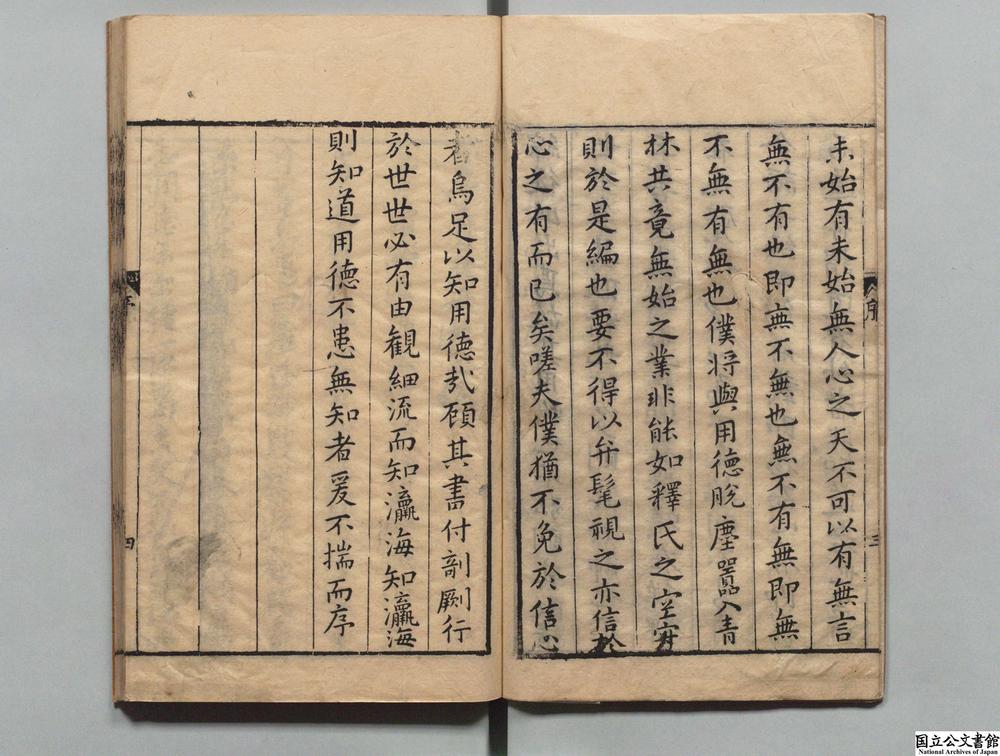 未始有未始無人心之天不可以有無言
無不有也即無不無也無不有無即無
不無有無也僕將與用德脫塵囂入青
林共竟無始之業非能如釋氏之空寂
則於是編也要不得以弁髦視之亦信於
心之有而已矣嗟夫僕猶不免於信心
者烏足以知用德哉顧其書付剞劂行
於世世必有由觀細流而知瀛海知瀛海
則知道用德不患無知者爰不揣而序
序
三
四
国立公文書館
National Archives of Japan